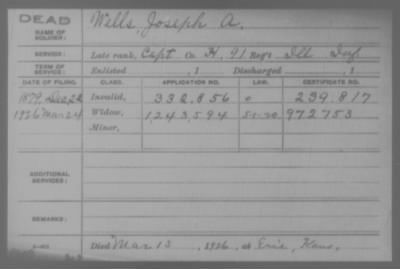 DEAD
Wells, Joseph A.
NAME OF SOLDIER:
SERVICE: Late rank, Capt Co. H, 91 Reg't Ill Inf
TERM OF SERVICE: Enlisted , 1 Discharged , 1
DATE OF FILING. CLASS. APPLICATION NO. LAW. CERTIFICATE NO.
1879, Dec, 26 Invalid, 332.856 o 239.817
1926 Mar 24 Widow, 1,243,594 5-1-20 972753
Minor,
ADDITIONAL SERVICES:
REMARKS:
Died Mar 13, 1926, at Erie, Kans.